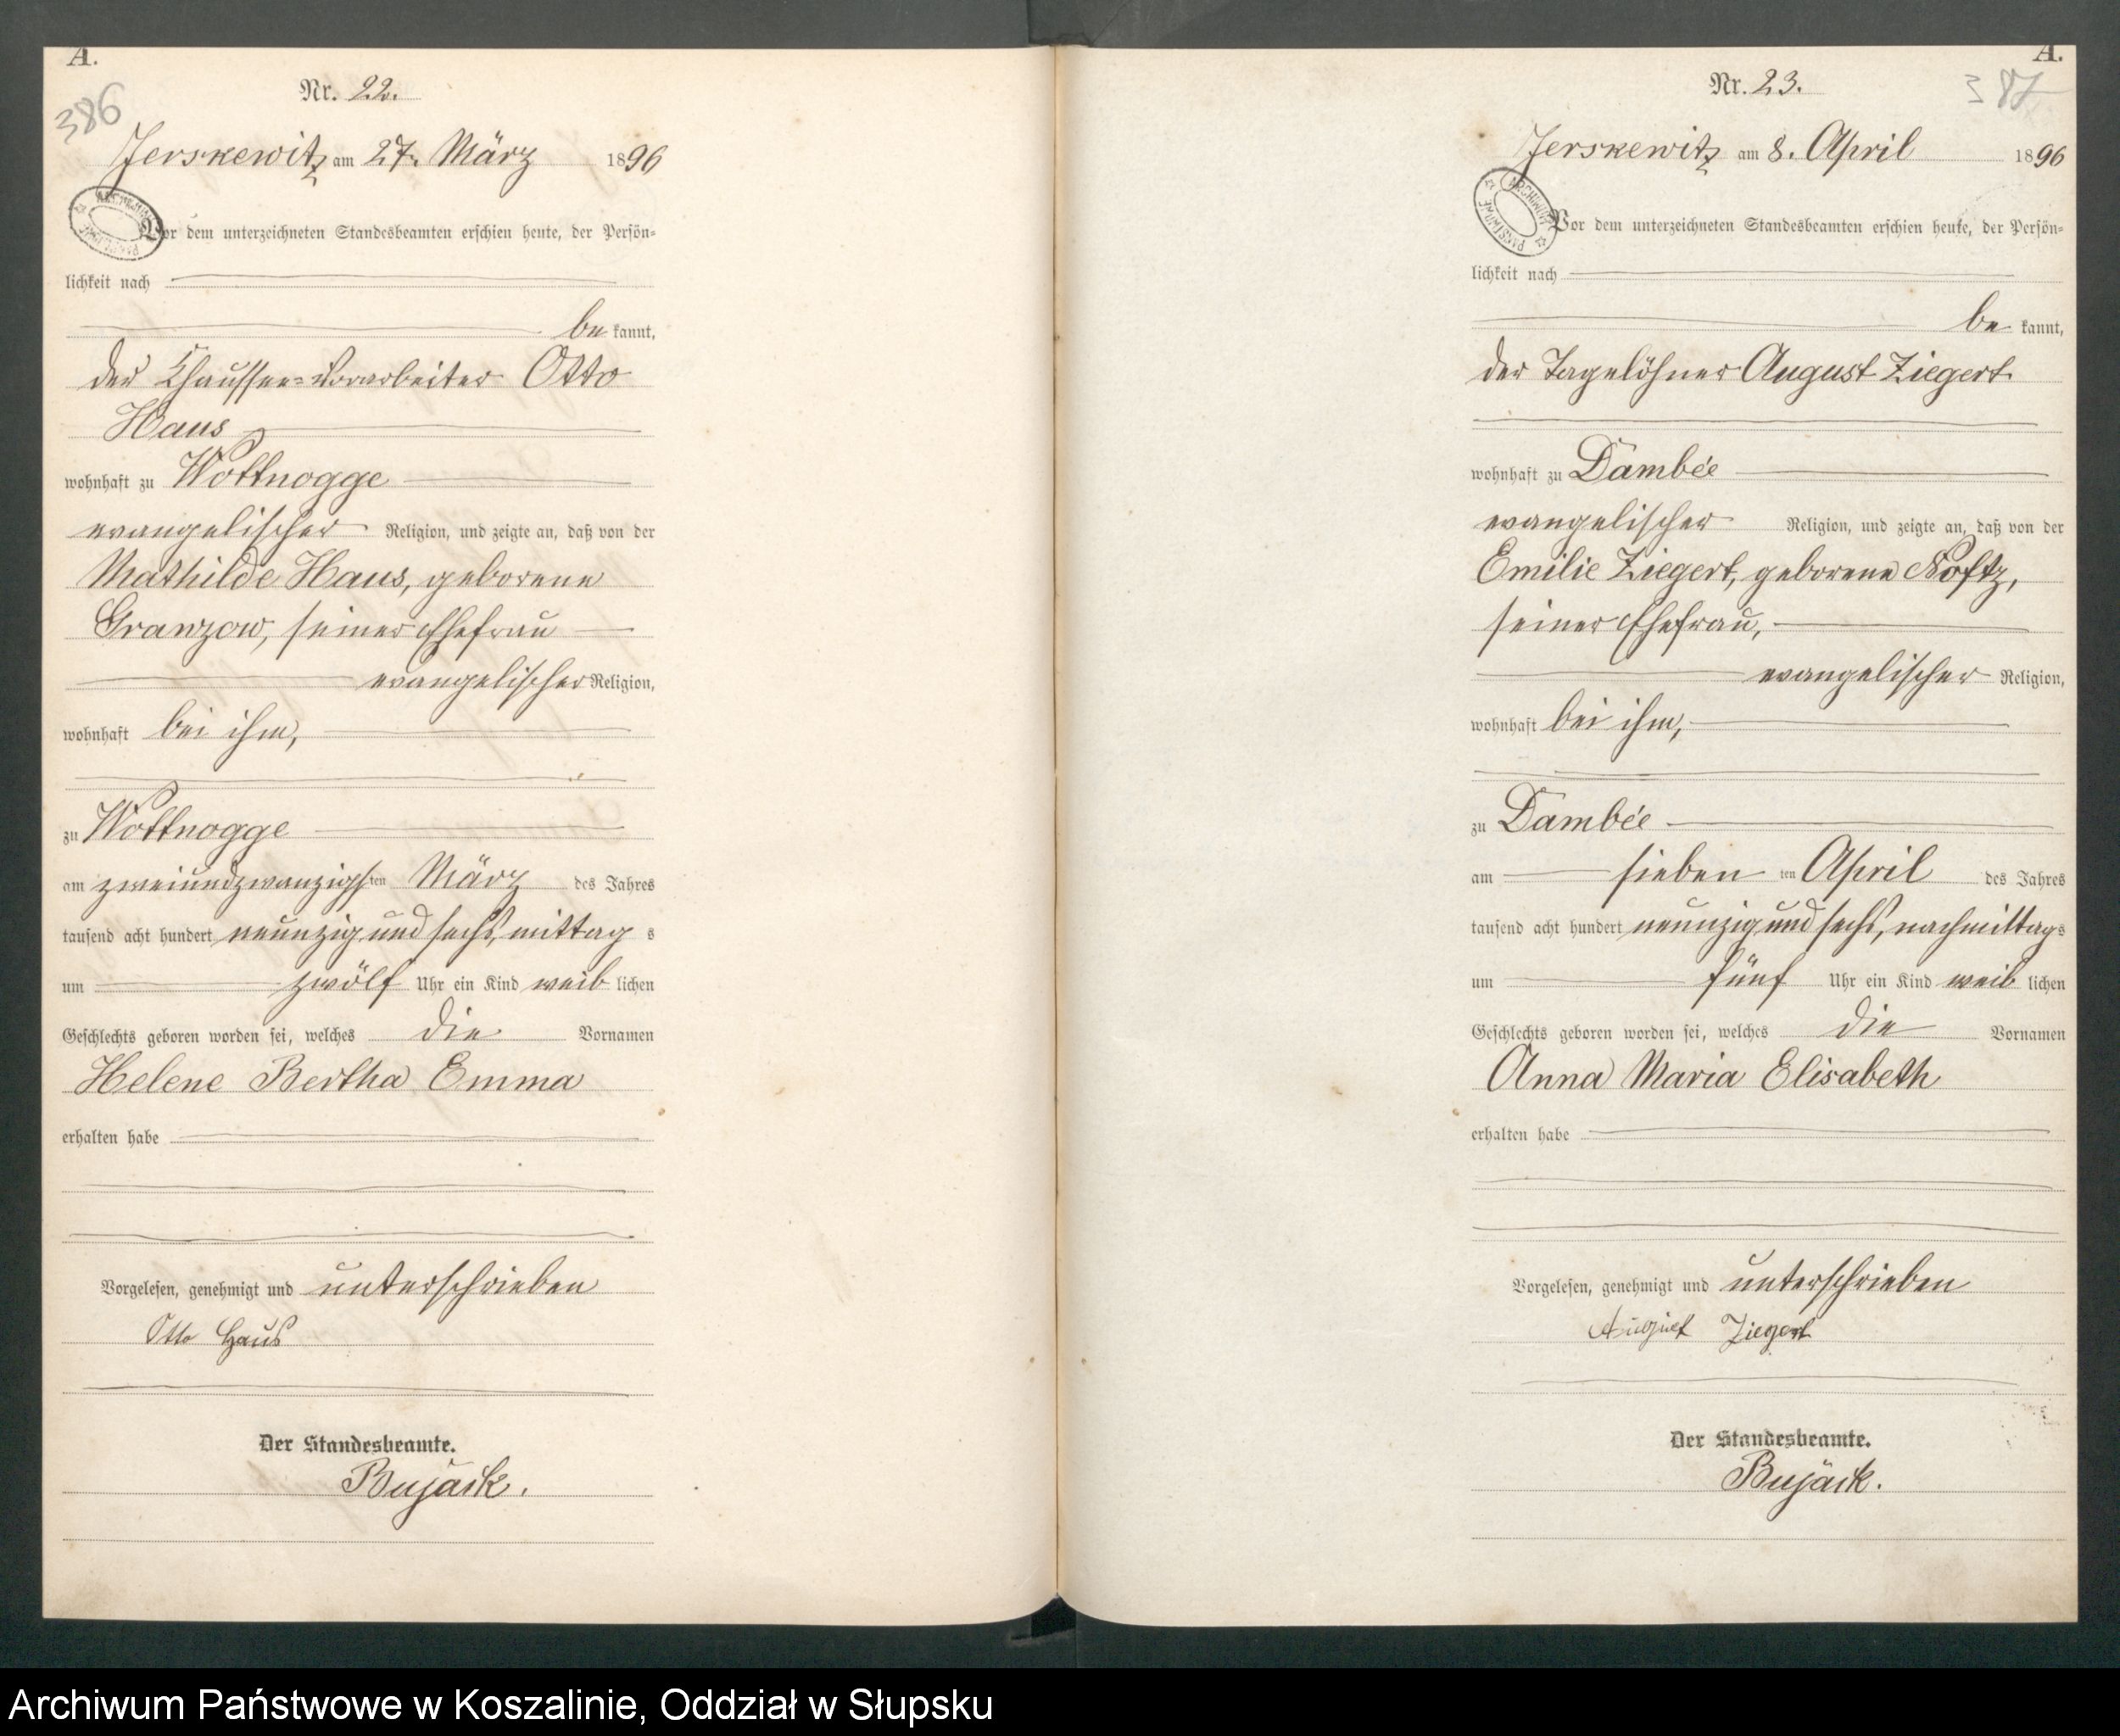 A.
Nr. 22.
386
Jerskewitz am 27. März 1896
Vor dem unterzeichneten Standesbeamten erschien heute, der Persön-
lichkeit nach
be kannt,
der Chaussee-Vorarbeiter Otto
Haus
wohnhaft zu Wottnogge
evangelischer Religion, und zeigte an, daß von der
Mathilde Haus, geborene
Granzow, seiner Ehefrau
evangelischer Religion,
wohnhaft bei ihm,
zu Wottnogge
am zweiundzwanzigsten März des Jahres
tausend acht hundert neunzig und sechs, mittag s
um zwölf Uhr ein Kind weib lichen
Geschlechts geboren worden sei, welches die Vornamen
Helene Bertha Emma
erhalten habe
Vorgelesen, genehmigt und unterschrieben
Otto Haus
Der Standesbeamte.
Bujack.
A.
Nr. 23.
387
Jerskewitz am 8. April 1896
ARCHIWUM PAŃSTWOWE
Vor dem unterzeichneten Standesbeamten erschien heute, der Persön-
lichkeit nach
be kannt,
der Tagelöhner August Ziegert
wohnhaft zu Dambée
evangelischer Religion, und zeigte an, daß von der
Emilie Ziegert, geborene Noftz,
seiner Ehefrau,
evangelischer Religion,
wohnhaft bei ihm,
zu Dambée
am sieben ten April des Jahres
tausend acht hundert neunzig und sechs, nachmittag s
um fünf Uhr ein Kind weib lichen
Geschlechts geboren worden sei, welches die Vornamen
Anna Maria Elisabeth
erhalten habe
Vorgelesen, genehmigt und unterschrieben
August Ziegert
Der Standesbeamte.
Bujack.
Archiwum Państwowe w Koszalinie, Oddział w Słupsku